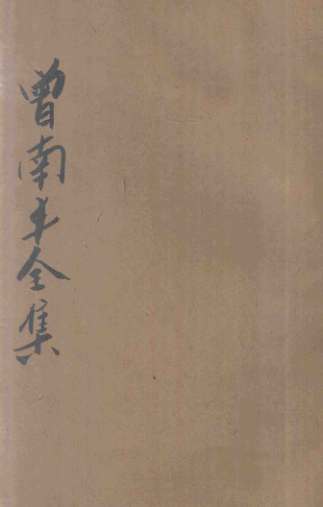 曾南丰全集